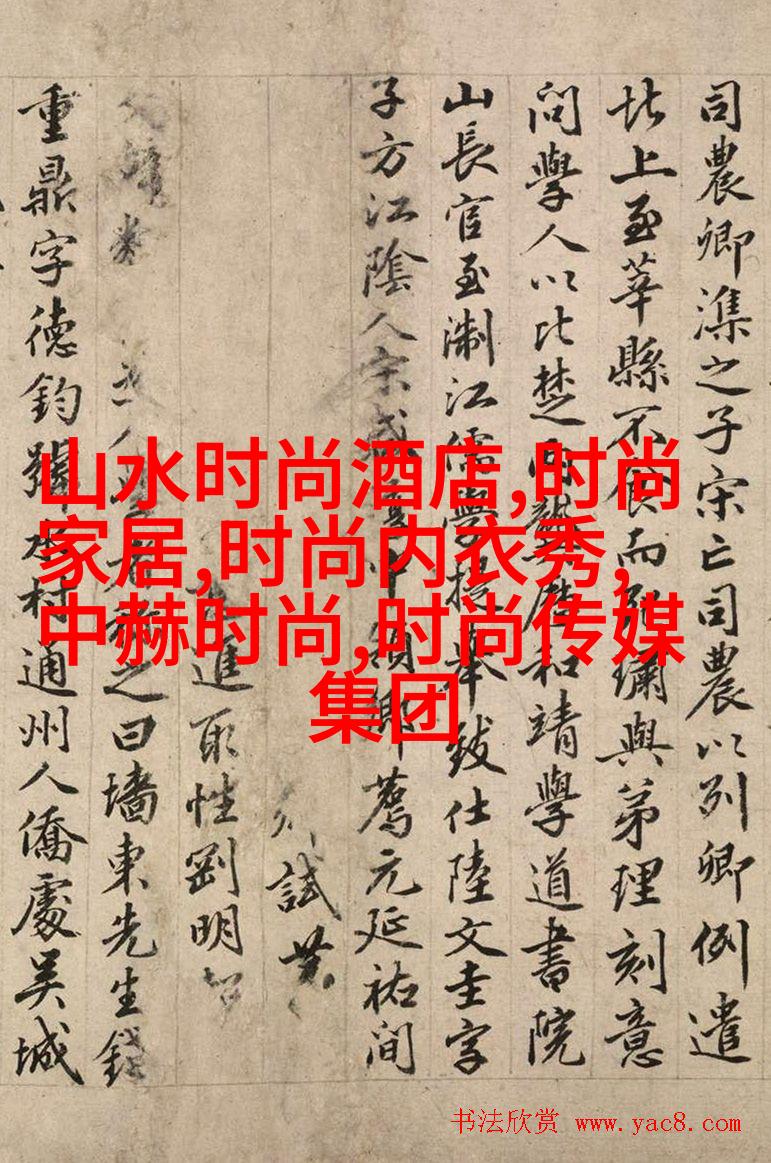 司農卿潗之子宋亡司農以列卿例遣
北上至莘縣不食而璛與弟理刻意
問學人以比楚兩龔歷和靖學道書院
山長官至淛江儒學提舉致仕陸文圭字
子方江陰人宋咸淳中領鄉薦元延祐間
試
進取性劉明
人之曰墻東先生錢
重鼎字德鈞號水村通州人僑處吳城
山水时尚酒店,时尚
家居,时尚内衣秀,
中赫时尚,时尚传媒
集团
书法欣赏 www.yac8.com